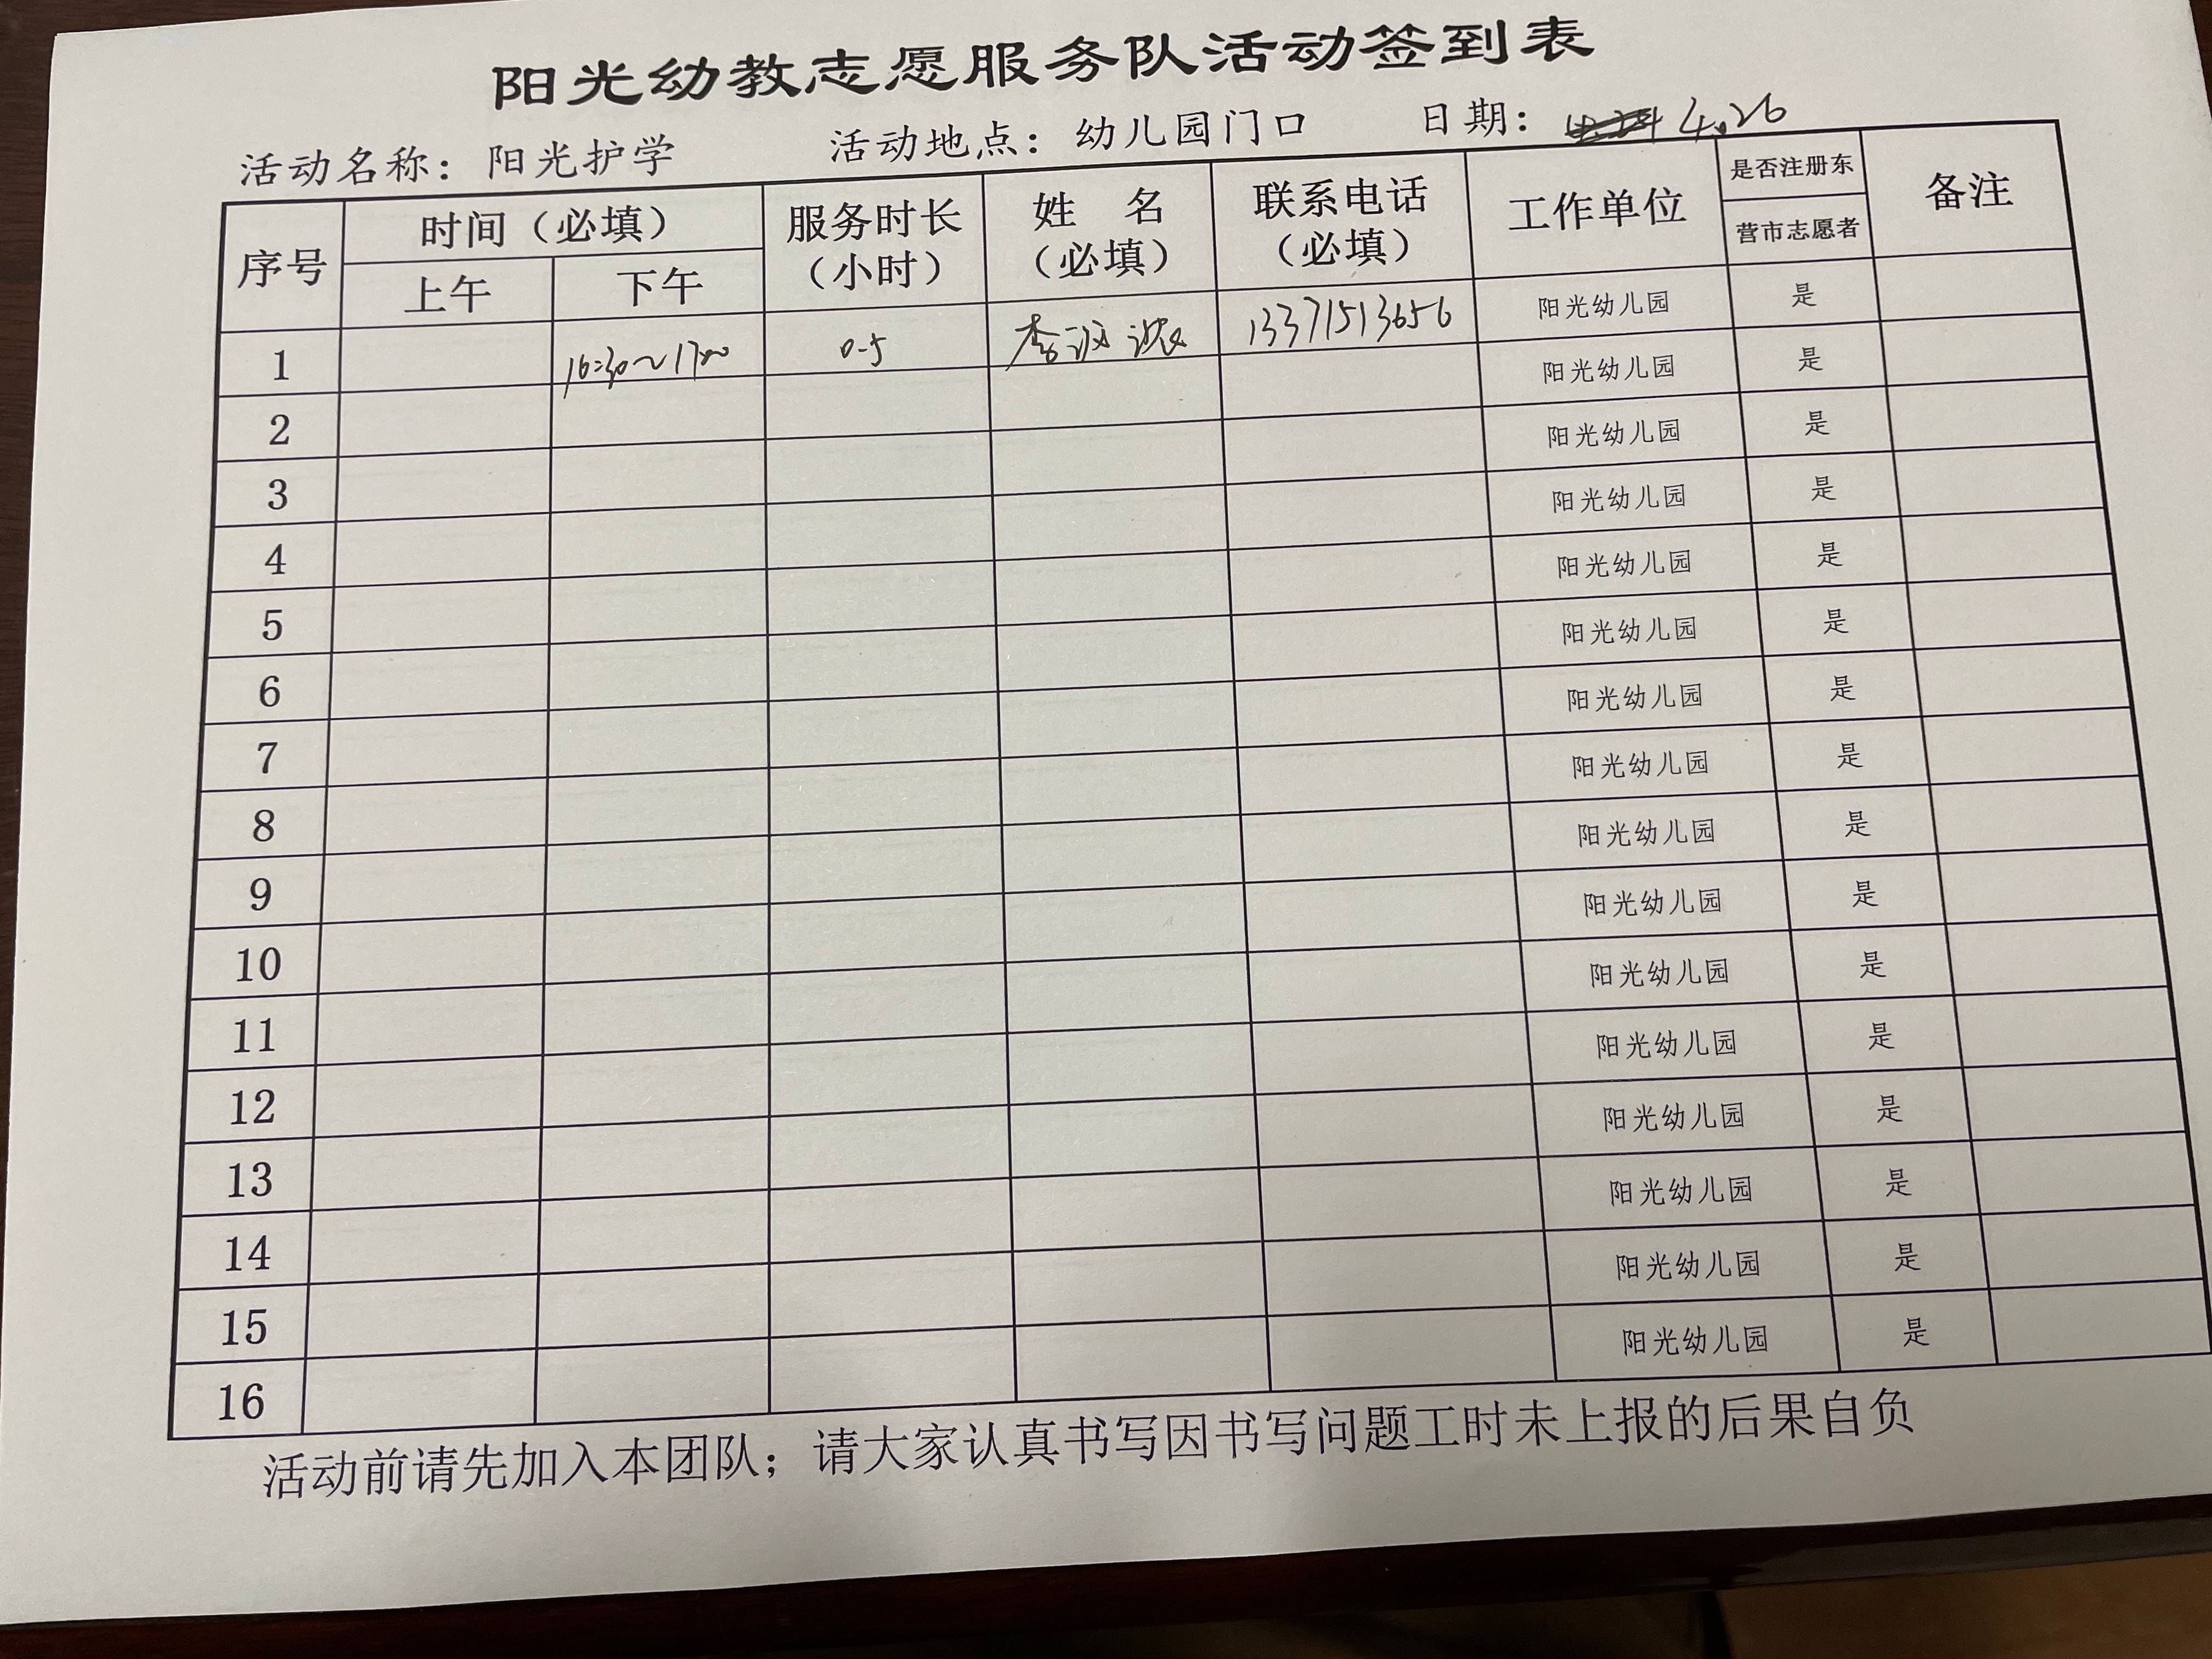 阳光幼教志愿服务队活动签到表
活动名称：阳光护学 活动地点：幼儿园门口 日期：4.26
序号 时间（必填） 服务时长（小时） 姓 名（必填） 联系电话（必填） 工作单位 是否注册东营市志愿者 备注
上午 下午
1 16:30~17:00 0.5 李 13371513656 阳光幼儿园 是
2 阳光幼儿园 是
3 阳光幼儿园 是
4 阳光幼儿园 是
5 阳光幼儿园 是
6 阳光幼儿园 是
7 阳光幼儿园 是
8 阳光幼儿园 是
9 阳光幼儿园 是
10 阳光幼儿园 是
11 阳光幼儿园 是
12 阳光幼儿园 是
13 阳光幼儿园 是
14 阳光幼儿园 是
15 阳光幼儿园 是
16 阳光幼儿园 是
活动前请先加入本团队；请大家认真书写因书写问题工时未上报的后果自负